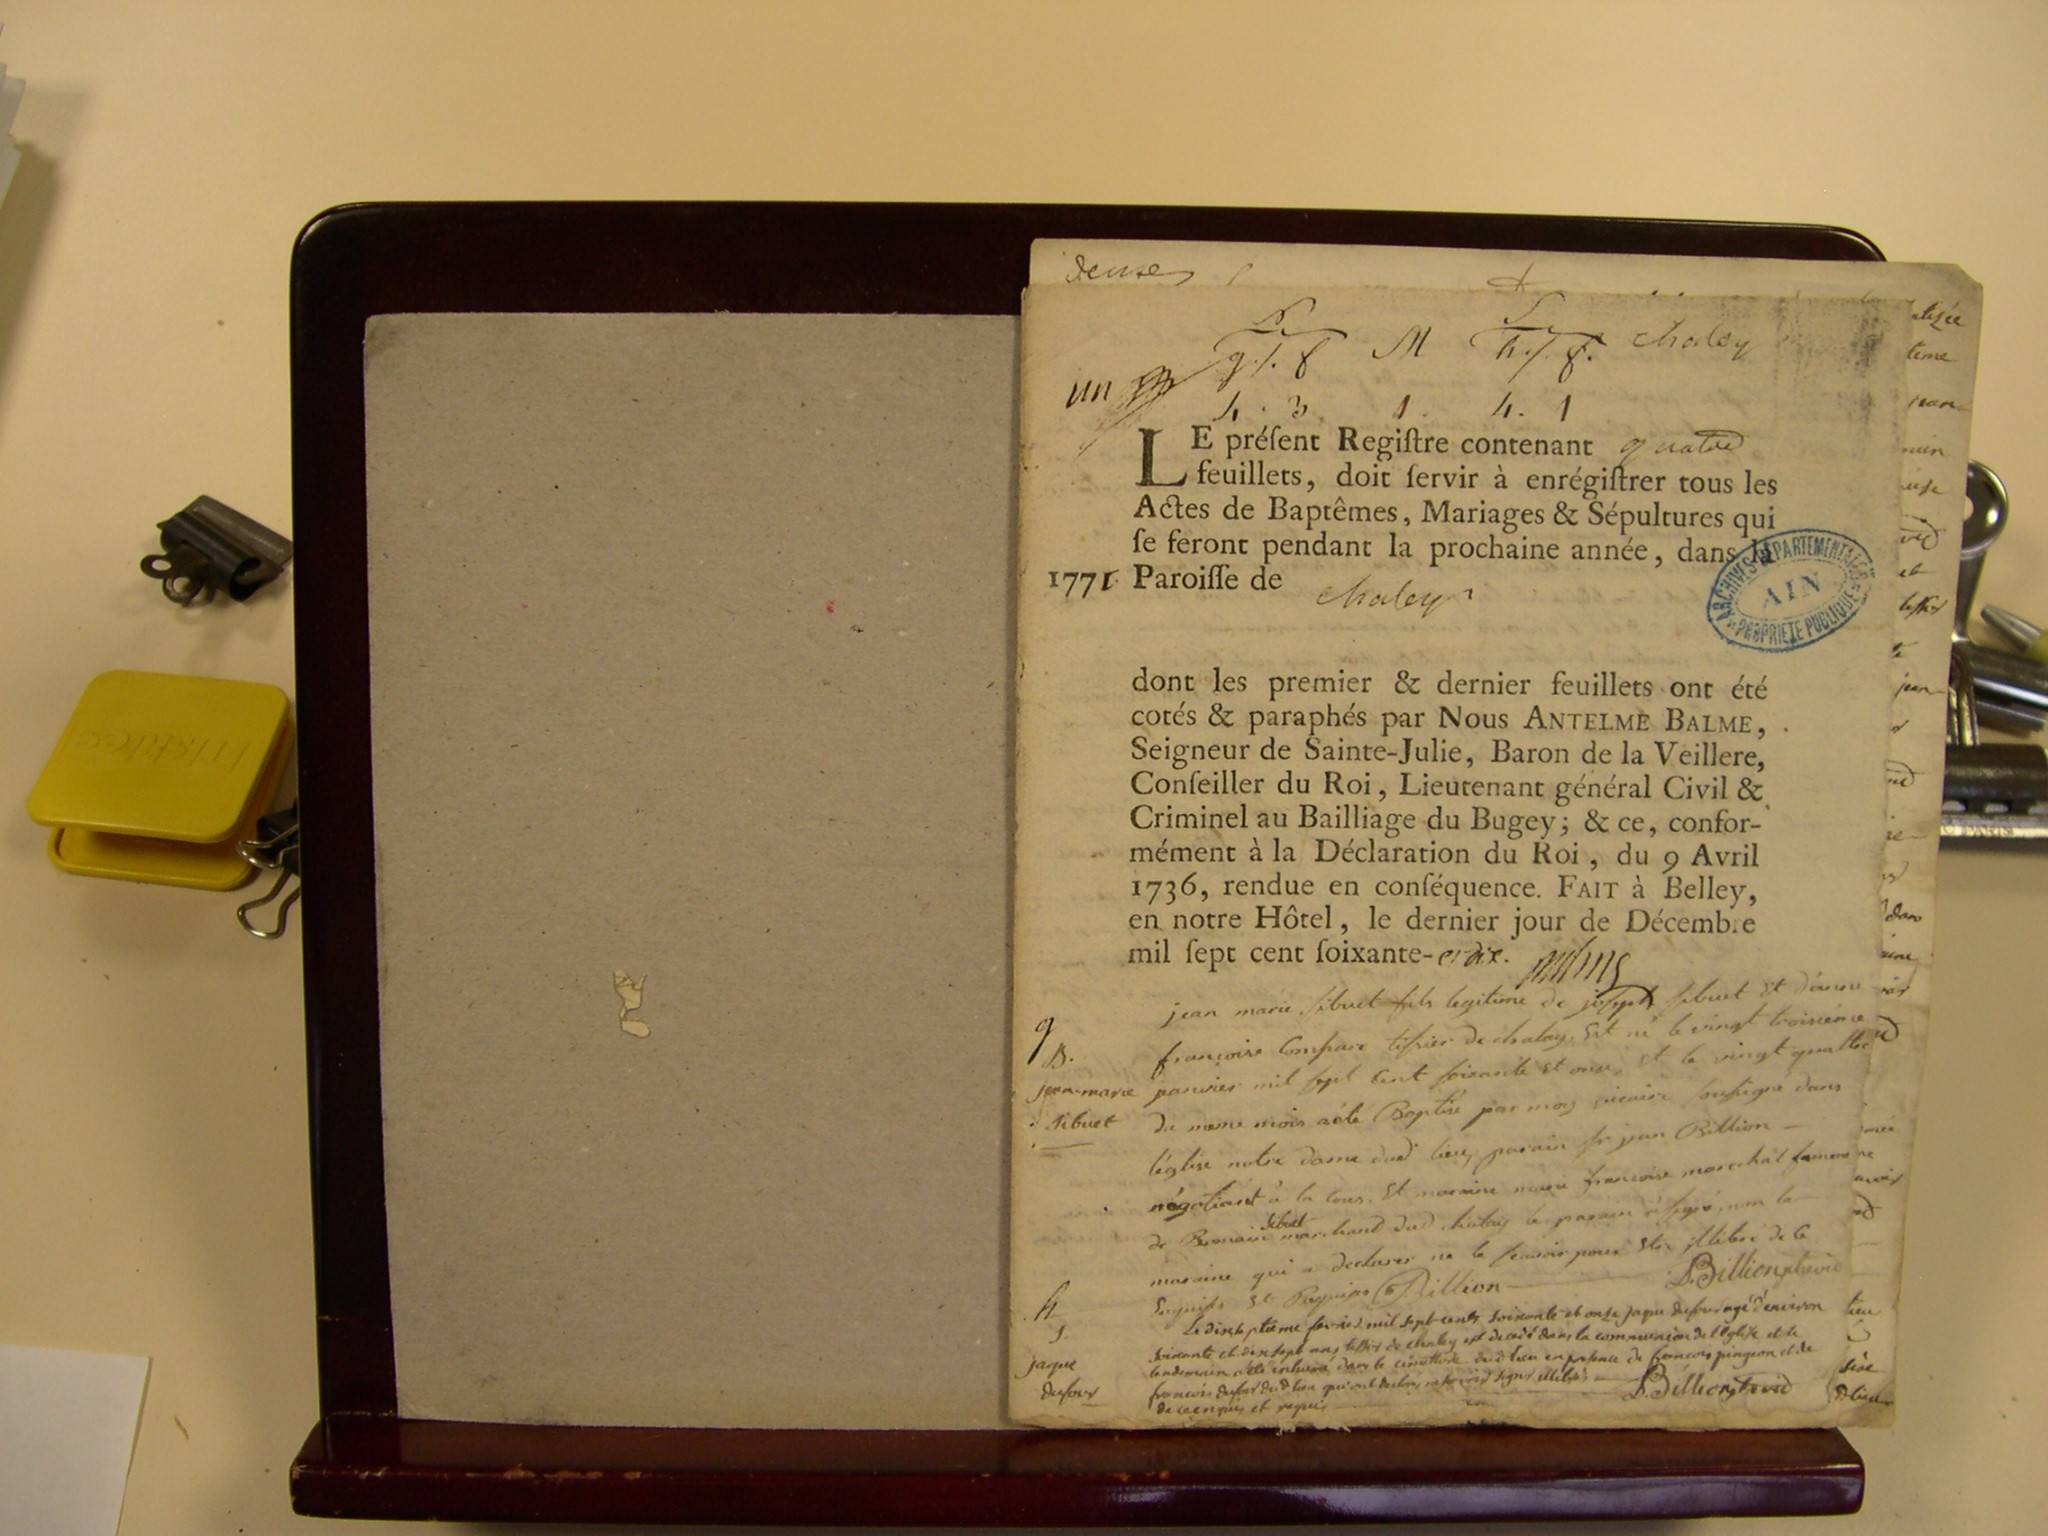 deuse
B. M S. chaley
g. / f h. / f.
un
4. 3 1. 4. 1
LE préſent Regiſtre contenant quatre
feuillets, doit ſervir à enrégiſtrer tous les
Actes de Baptêmes, Mariages & Sépultures qui
ſe feront pendant la prochaine année, dans la
1771 Paroiſſe de chaley
ARCHIVES DÉPARTEMENTALES
AIN
PROPRIÉTÉ PUBLIQUE
dont les premier & dernier feuillets ont été
cotés & paraphés par Nous ANTELME BALME,
Seigneur de Sainte-Julie, Baron de la Veillere,
Conſeiller du Roi, Lieutenant général Civil &
Criminel au Bailliage du Bugey; & ce, confor-
mément à la Déclaration du Roi, du 9 Avril
1736, rendue en conſéquence. FAIT à Belley,
en notre Hôtel, le dernier jour de Décembre
mil ſept cent ſoixante-et dix.
g
B.
jean-marie
sibuet
jean marie sibuet fils legitime de joseph sibuet Et
françoise Compare tissier de chaley, Est né le vingt troisième
janvier mil sept Cent soixante Et onze, Et le vingt quattre
du meme mois a été Baptisé par moy vicaire soussigné dans
l'église notre dame dud lieu, parain sr jean Billion
négotiant à la Et maraine marie françoise marechal femme
de Romain sibuet marchand dud chaley le parain a signé, non la
maraine qui a declarer ne le scavoir pour Etre illitéré de ce
Enquise Et Requise Billion Billion
h
S.
jaque
dufour
Le dixseptième fevrier mil sept-cents soixante et onze jaque dufour agé d'environ
soixante et dix sept ans tissier de chaley est decedé dans la communion de l'Eglise et le
lendemain a été inhumé dans le cimettiere dud lieu en presence de françois pingeon et de
françois dufour dud lieu qui ont declaré ne scavoir signer illitérés
de ce enquis et requis Billion